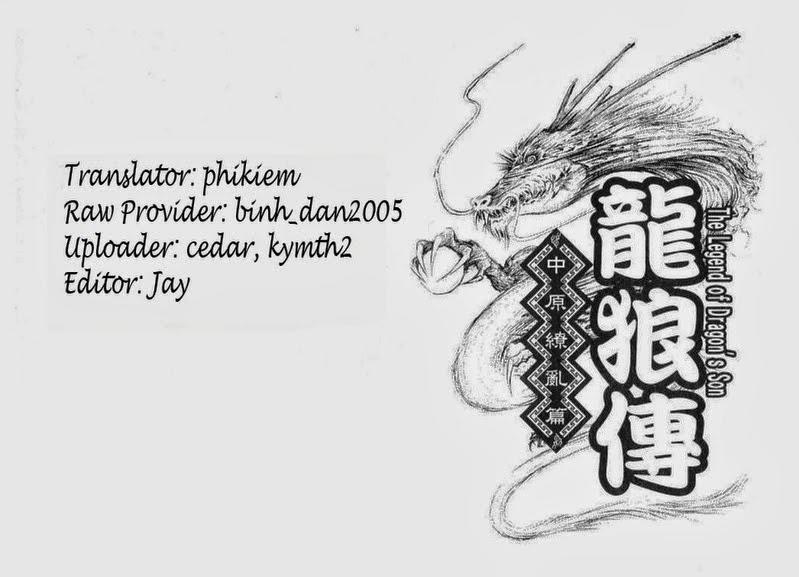 Translator: phikiem
Raw Provider: binh_dan2005
Uploader: cedar, kymth2
Editor: Jay
龍狼傳
The Legend of Dragon's Son
中原繚亂篇